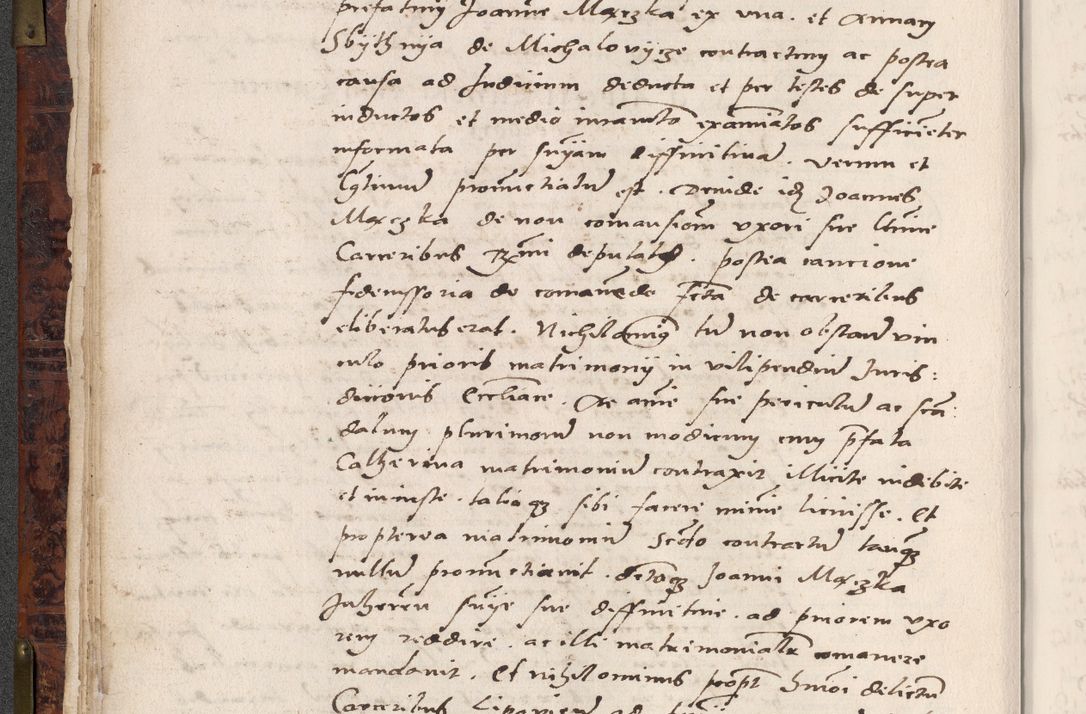 prefatum Joannem Marczka ex una. et Annam
Sbythnya de Michalovycze contractum ac postea
causa ad Judicium deducta et per testes de super
inductos et medio iuramto examiatos sufficieter
informata per sniam diffinitiva. verum et
pronuctiatu est. Deinde idz Joannes
Marczka de non comansiom uxori sue
Carceribus deputatus. postea caucione
fideiussoria de comanedo fcta de carceribus
eliberatus erat. Nichilominus tn non obstan vin
culo prioris matrimonij in vilipendiu Juris=
dictionis Eccliace. Ac anie sue periculu ac sca
dalum plurimoru non modicum cum pfata
Catherina matrimoniu contraxit illicite indebite
et iniuste. talia qz sibi facere minie licuisse. Et
propterea matrimoniu Scdo contractu tanqz
nullu pronuctiavit. dctoqz Joanni Marczka
Inheren snie sue diffinitive. ad priorem uxo
rem reddire. ac illi matrimonialr comanere
mandavit. Et nihilominus propt hmoi delictu
Carceribus ad